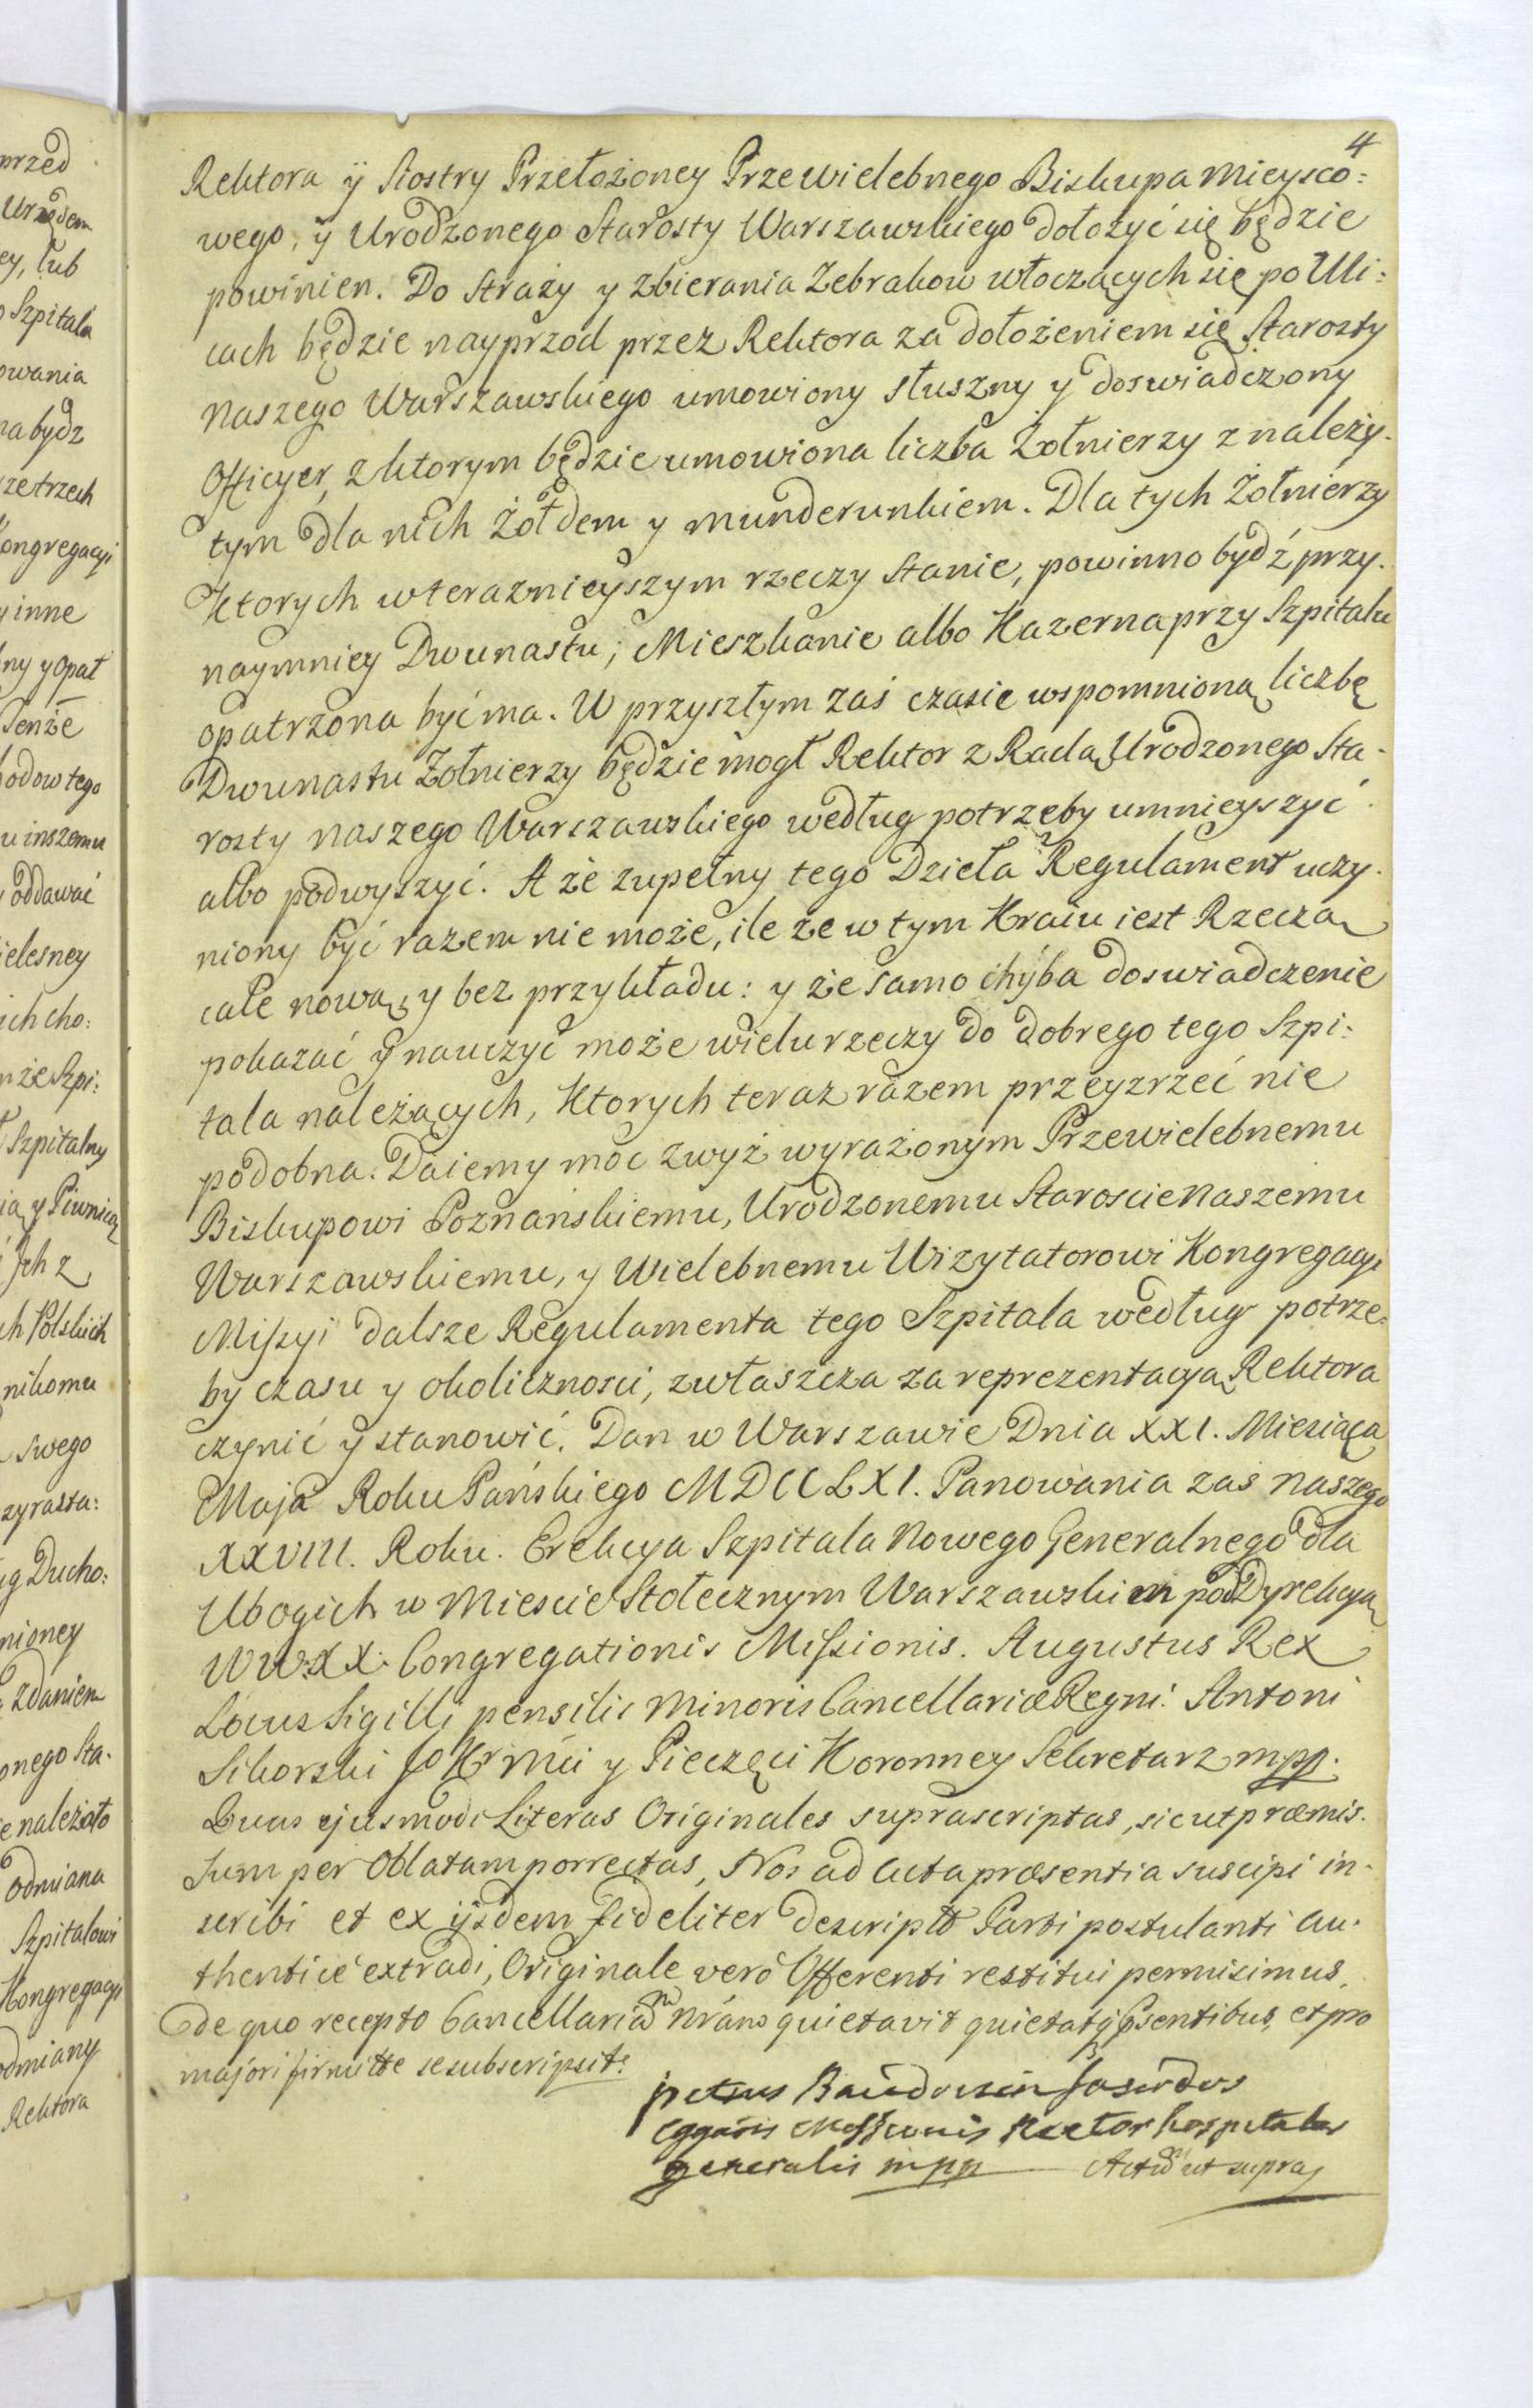 4
Rektora ÿ Siostry Przełożoney Przewielebnego Biskupa Mieysco:
wego, y Urodzonego Starosty Warszawskiego dołożyć się będzie
powinien. Do Straży y zbierania Zebrakow włoczących się po Uli:
cach będzie nayprzod przez Rektora za dołożeniem się Starosty
Naszego Warszawskiego umowiony słuszny y doswiadczony
Officyer, z ktorym będzie umowiona liczba Żołnierzy z należy.
tym dla nich Żołdem y Munderunkiem. Dla tych Żołnierzy
Ktorych w teraznieyszym rzeczy Stanie, powinno bydź przy.
naymniey Dwunastu; Mieszkanie albo Kazerna przy Szpitalu
opatrzona być ma. W przyszłym zaś czasie wspomnioną liczbę
Dwunastu Żołnierzy będzie mogł Rektor z Radą Urodzonego Sta-
rosty naszego Warszawskiego według potrzeby umnieyszyć
albo podwyszyć. A że zupełny tego Dzieła Regulament uczy.
niony być razem nie może, ile że w tym Kraiu iest Rzeczą
całe nową, y bez przykładu: y że samo chyba doswiadczenie
pokazać y nauczyć może wielu rzeczy do dobrego tego Szpi:
tala należących, Ktorych teraz razem przeyzrzeć nie
podobna. Daiemy moc zwyż wyrażonym Przewielebnemu
Biskupowi Poznańskiemu, Urodzonemu Staroscie Naszemu
Warszawskiemu, y Wielebnemu Wizytatorowi Kongregacyi
Missyi dalsze Regulamenta tego Szpitala według potrze:
by czasu y okolicznosci, zwłaszcza za reprezentacyą Rektora
czynić y stanowić. Dan w Warszawie Dnia XXI. Miesiąca
Maja Roku Pańskiego MDCCLXI. Panowania zaś Naszego
XXVIII. Roku. Erekcya Szpitala Nowego Generalnego dla
Ubogich w Miescie Stołecznym Warszawskim pod Dyrekcyą
WW:XX: Congregationis Missionis. Augustus Rex
Locus Sigilli pensilis Minoris Cancellariæ Regni. Antoni
Sikorski JoKr Mci y Pieczęci Koronney Sekretarz mpp.
Quas ejusmodi Literas Originales suprascriptas, sicut præmis.
sum per Oblatam porrectas, Nos ad Acta præsentia suscipi in-
scribi et ex ijsdem fideliter descripto Parti postulanti au.
thentice extradi, Originale vero Offerenti restitui permisimus,
de quo recepto Cancellariam nram quietavit quietatq; psentibus, et pro
majori firmitte se subscripsit.
petrus Baudouin Sacerdos
Cggãoñis Missionis Rector hospitalis
generalis mpp Actũ ut supra